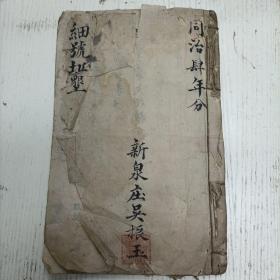 同治肆年分
新泉庄吴振玉
細號址墾